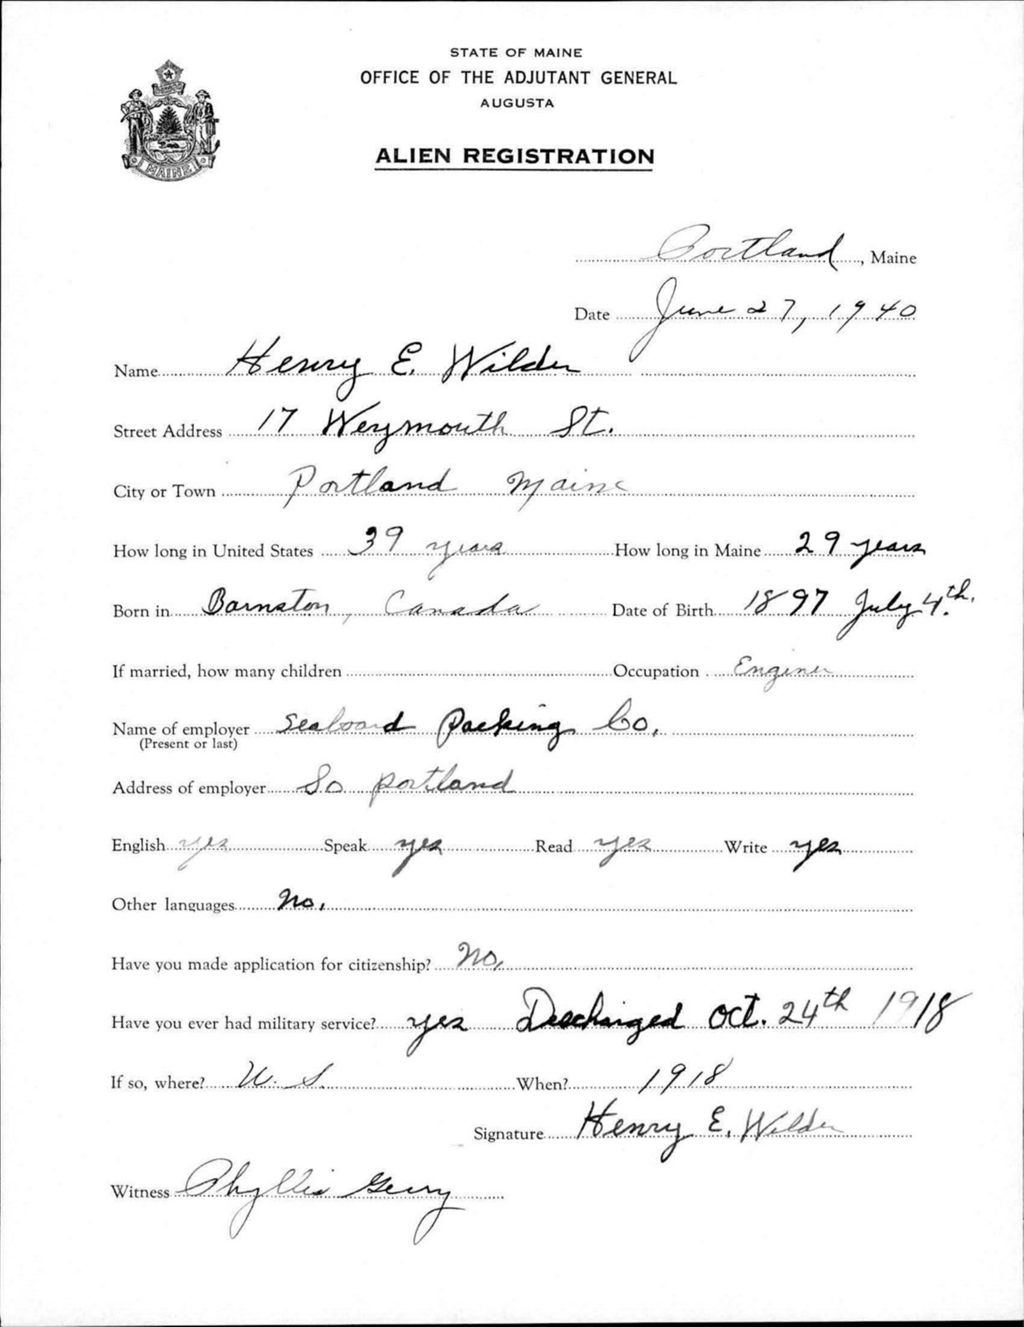 STATE OF MAINE
OFFICE OF THE ADJUTANT GENERAL
AUGUSTA
ALIEN REGISTRATION
MAINE
Portland, Maine
Date June 27, 1940
Name Henry E. Wilder
Street Address 17 Weymouth St.
City or Town Portland Maine
How long in United States 39 years How long in Maine 29 years
Born in Barnston, Canada Date of Birth 1897 July 4th.
If married, how many children Occupation Enginer
Name of employer Seaboard Packing Co.
(Present or last)
Address of employer So Portland
English yes Speak yes Read yes Write yes
Other languages No.
Have you made application for citizenship? No.
Have you ever had military service? yes Descharged Oct. 24th 1918
If so, where? U. S. When? 1918
Signature Henry E. Wilder
Witness Phyllis Gerry